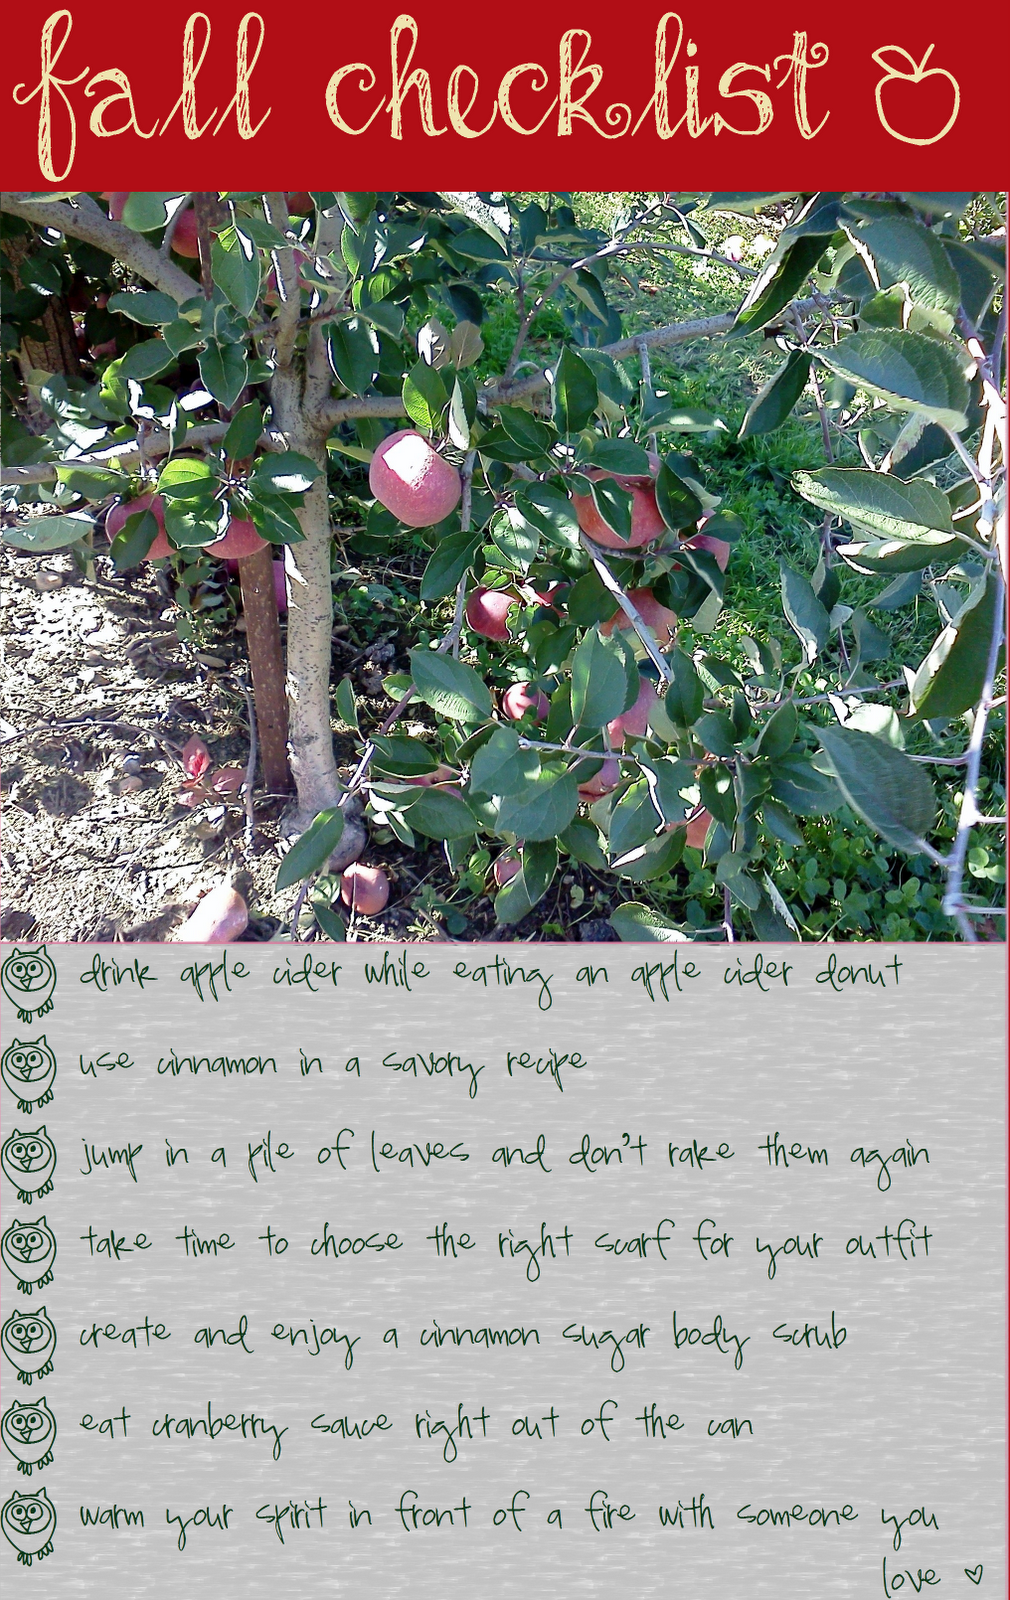 fall checklist
drink apple cider while eating an apple cider donut
use cinnamon in a savory recipe
jump in a pile of leaves and don't rake them again
take time to choose the right scarf for your outfit
create and enjoy a cinnamon sugar body scrub
eat cranberry sauce right out of the can
warm your spirit in front of a fire with someone you
love ♡